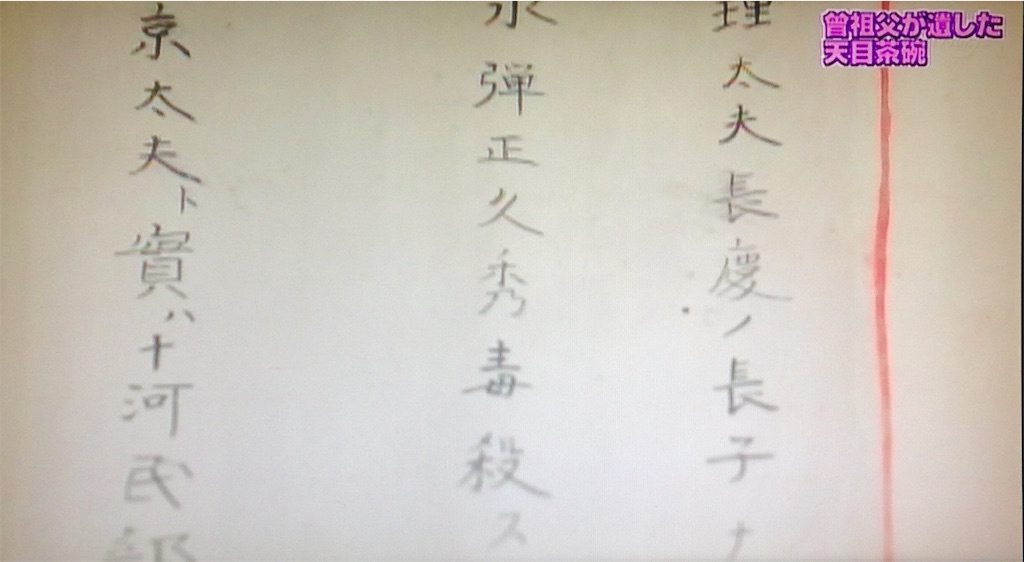 曾祖父が遺した
天目茶碗
理太夫長慶ノ長子ナ
永弾正久秀毒殺ス
京太夫ト實ハ十河民部